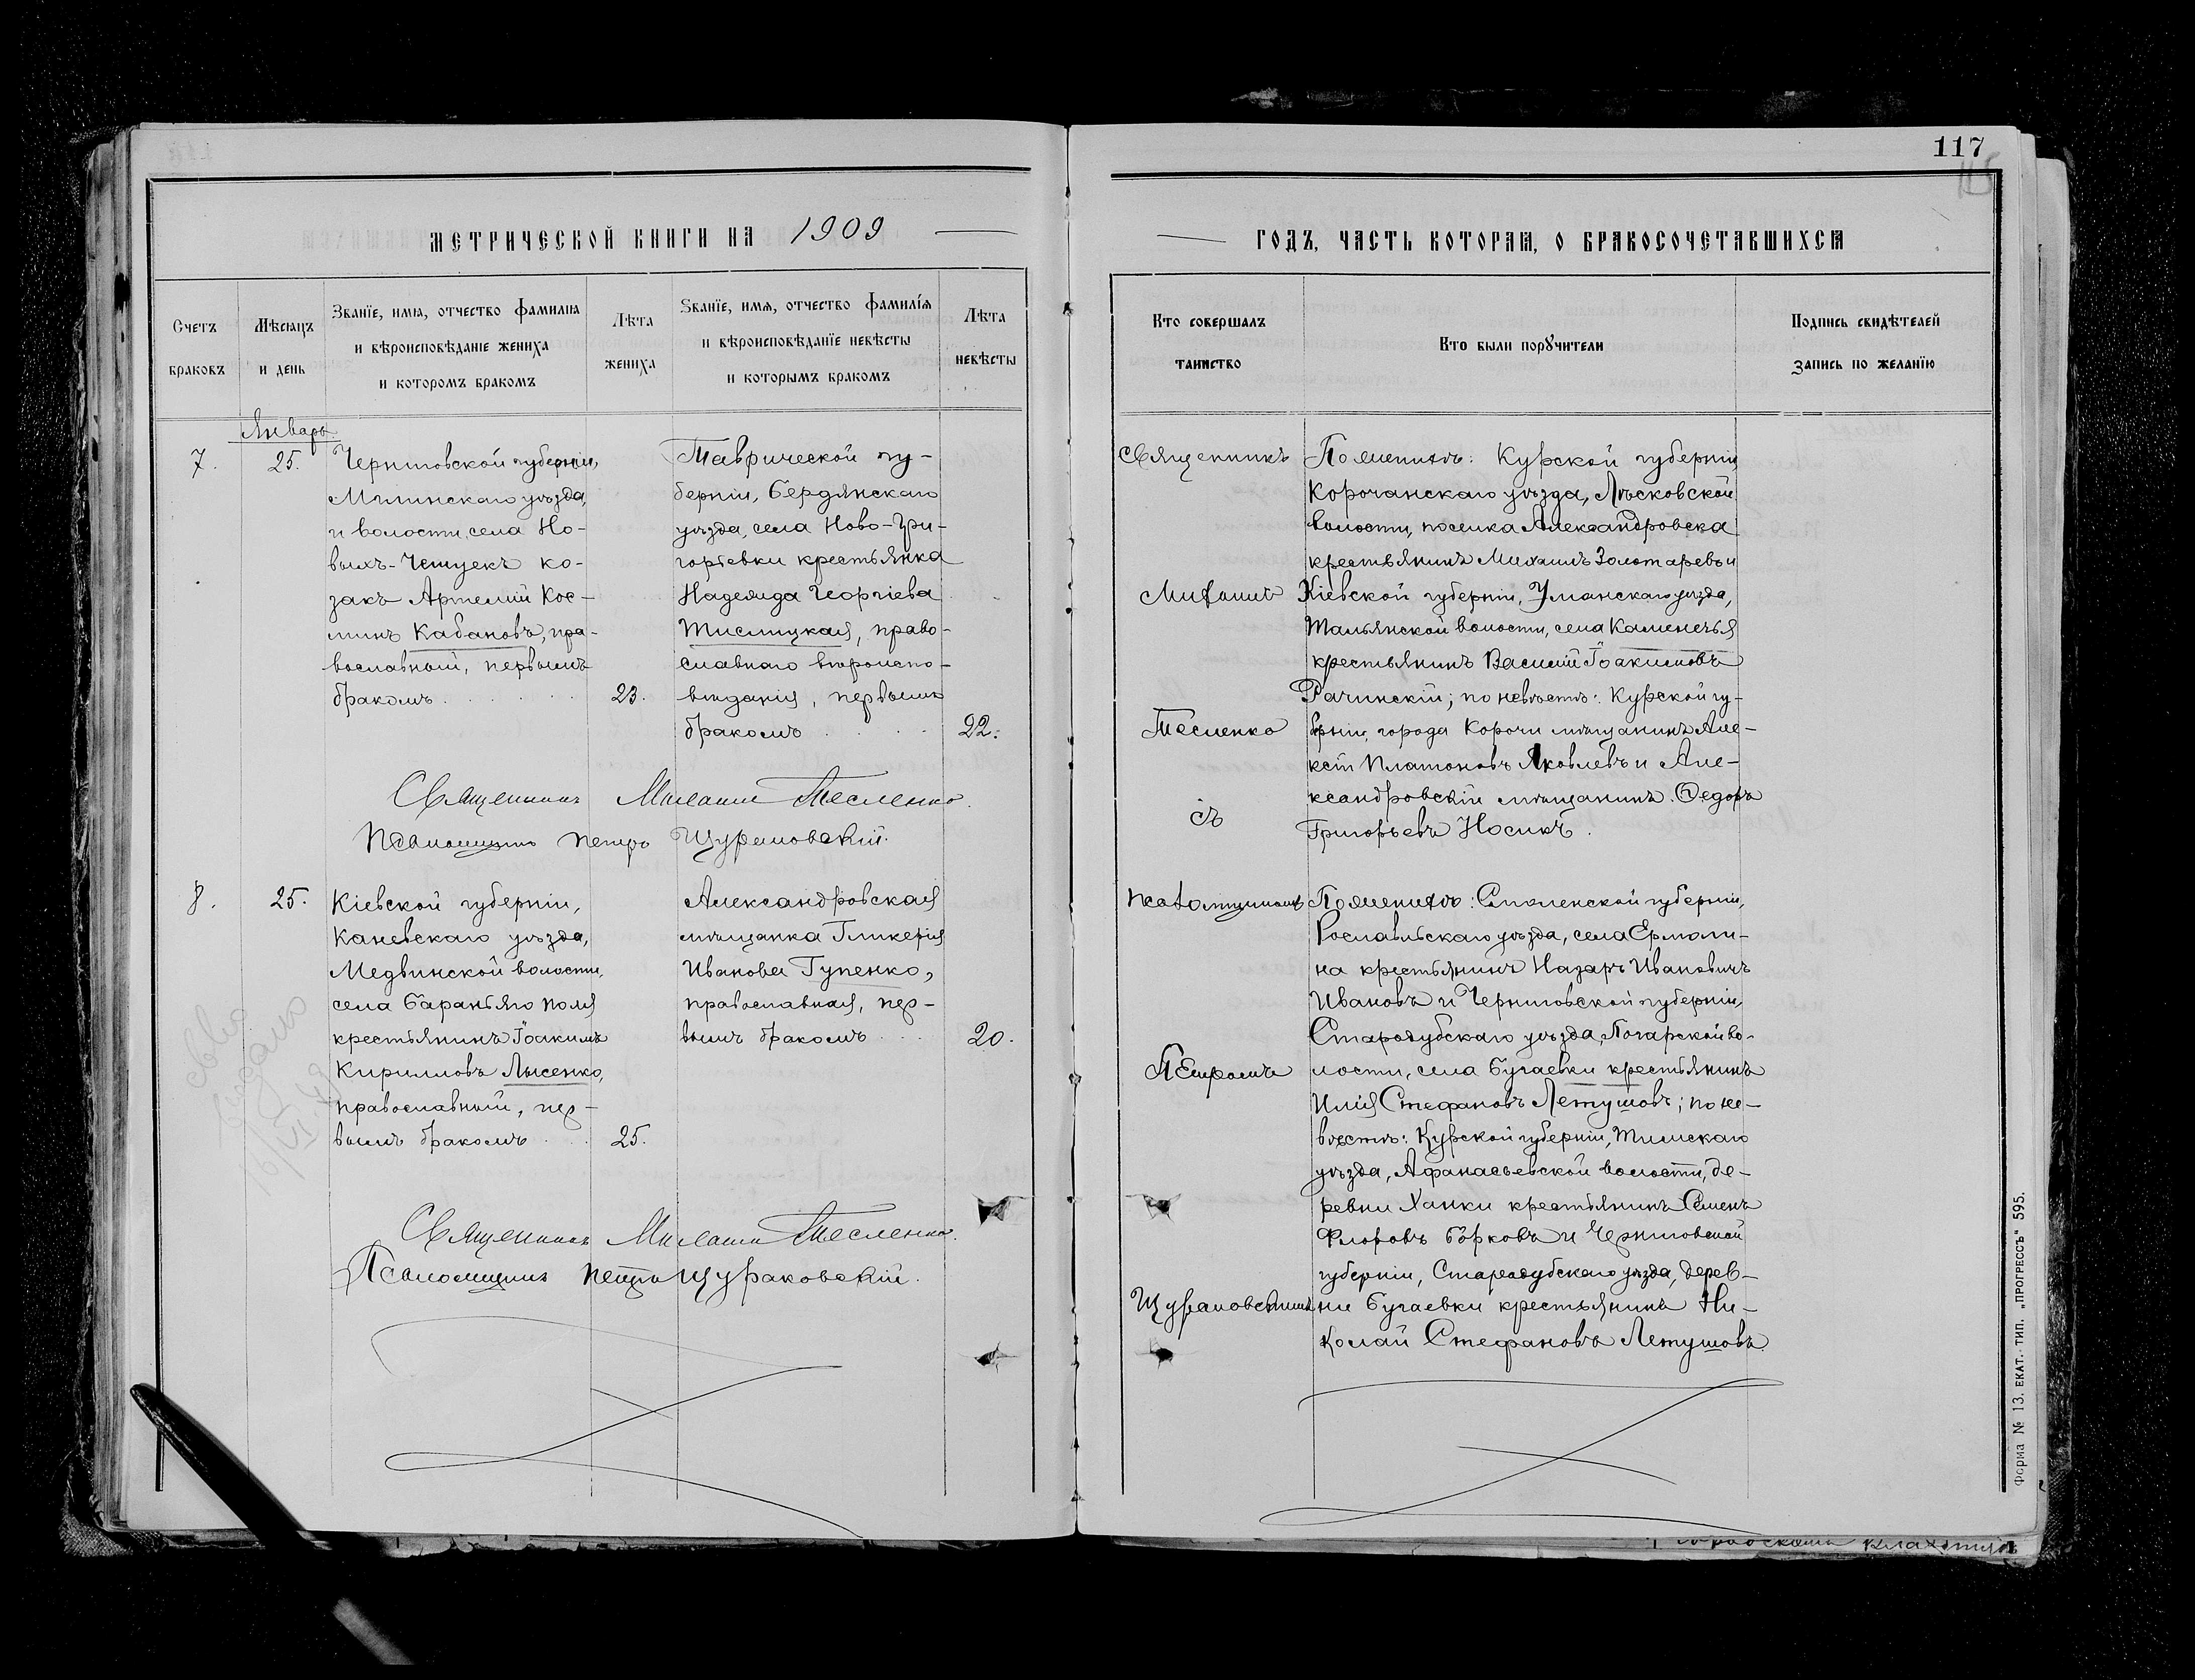 117
МЕТРИЧЕСКОЙ КНИГИ НА 1909
ГОДЪ, ЧАСТЬ ВТОРАЯ, О БРАКОСОЧЕТАВШИХСЯ
Счетъ браковъ
Мѣсяцъ и день
Званїе, имя, отчество фамилия
и вѣроисповѣданіе жениха
и которомъ бракомъ
Лѣта жениха
Званїе, имя, отчество фамилїя
и вѣроисповѣданїе невѣсты
и которымъ бракомъ
Лѣта невѣсты
Кто совершалъ таинство
Кто были порꙋчители
Подпись свидѣтелей
запись по желанїю
Январь
7.
25.
Черниговской губерніи,
Мглинскаго уѣзда,
и волости, села Но-
выхъ-Чешуекъ ко-
закъ Артемій Кос-
минъ Кабановъ, пра-
вославный, первымъ
бракомъ
23.
Таврической гу-
берніи, Бердянскаго
уѣзда, села Ново-Гри-
горьевки крестьянка
Надежда Георгіева
Тислицкая, право-
славнаго вѣроиспо-
вѣданія, первымъ
бракомъ
22.
Священникъ Михаилъ Тесленко.
Псаломщикъ Петръ Щураковскій.
8.
25.
Кіевской губерніи,
Каневскаго уѣзда,
Медвинской волости,
села Бараньяго поля
крестьянинъ Іоакимъ
Кирилловъ Лысенко,
православный, пер-
вымъ бракомъ
25.
Александровская
мѣщанка Гликерія
Иванова Гупенко,
православная, пер-
вымъ бракомъ
20.
16/VI
Священникъ Михаилъ Тесленко.
Псаломщикъ Петръ Щураковскій.
Священникъ
Михаилъ
Тесленко
съ
псаломщикомъ
Петромъ
Щураковскимъ
По женихѣ: Курской губерніи
Корочанскаго уѣзда, Лѣсковской
волости, поселка Александровска
крестьянинъ Михаилъ Золотаревъ и
Кіевской губерніи, Уманскаго уѣзда,
Тальянской волости, села Каменечья
крестьянинъ Василій Іоакимовъ
Рачинскій; по невѣстѣ: Курской гу-
берніи, города Корочи мѣщанинъ Але-
ксѣй Платоновъ Яковлевъ и Але-
ксандровскій мѣщанинъ Ѳедоръ
Григорьевъ Носикъ.
По женихѣ: Смоленской губерніи,
Рославльскаго уѣзда, села Ермоли-
на крестьянинъ Назаръ Ивановичъ
Ивановъ и Черниговской губерніи,
Стародубскаго уѣзда, Погарской во-
лости, села Бугаевки крестьянинъ
Илія Стефановъ Летушовъ; по не-
вѣстѣ: Курской губерніи, Тимскаго
уѣзда, Афанасьевской волости, де-
ревни Ханки крестьянинъ Семенъ
Флоровъ Борковъ и Черниговской
губерніи, Стародубскаго уѣзда, дерев-
ни Бугаевки крестьянинъ Ни-
колай Стефановъ Летушовъ
Форма № 13. ЕКАТ. ТИП. „ПРОГРЕССЪ" 595.